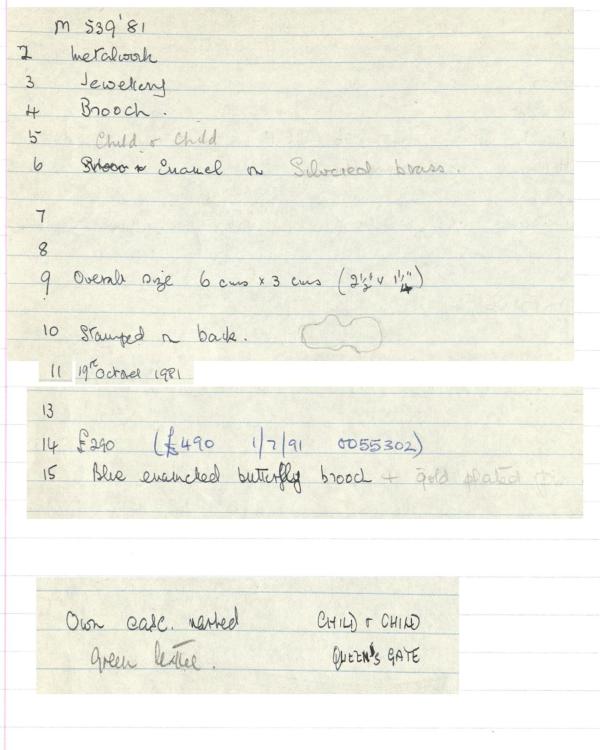 M 539'81
2 Metalwork
3 Jewellery
4 Brooch.
5 Child & Child
6 Enamel on Silvered brass.
7
8
9 Overall size 6 cms x 3 cms (2½" x 1¼")
10 Stamped on back.
11 19th October 1981
13
14 £290 (£490 1/7/91 0055302)
15 Blue enamelled butterfly brooch + gold plated
Own case. marked CHILD & CHILD
green leather. QUEEN'S GATE